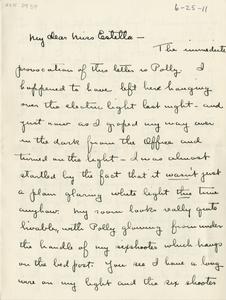 6-25-11
My dear Miss Estella –
The immediate
provocation of this letter is Polly. I
happened to have left her hanging
over the electric light last night – and
just now as I groped my way over
in the dark from the Office and
turned on the light – I was almost
startled by the fact that it wasn't just
a plain glaring white light this time
anyhow. My room looks really quite
livable, with Polly glowing from under
the handle of my sixshooter which hangs
on the bed post. You see I have a long
wire on my light and the six shooter